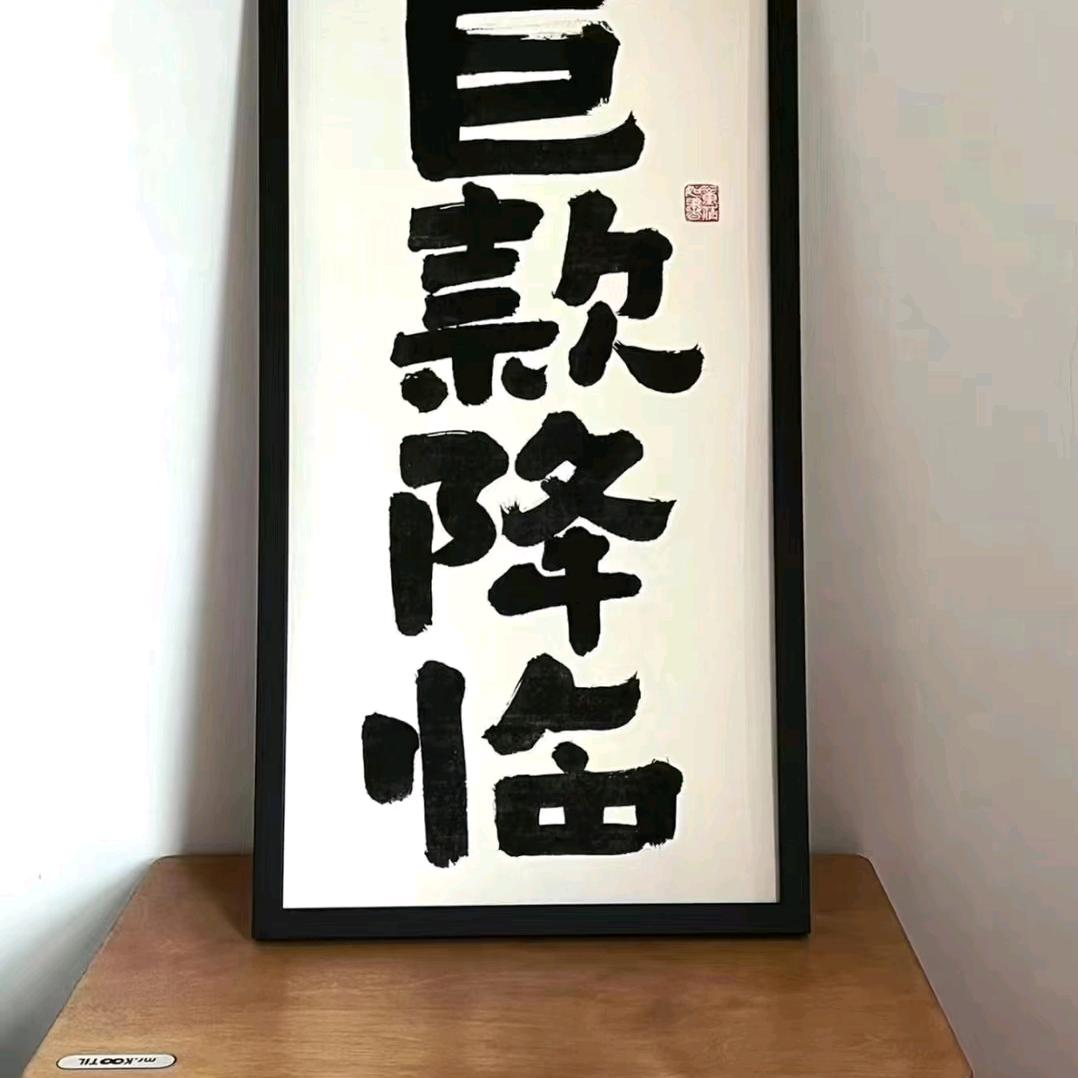 巨款降临
mr.KOOTIL